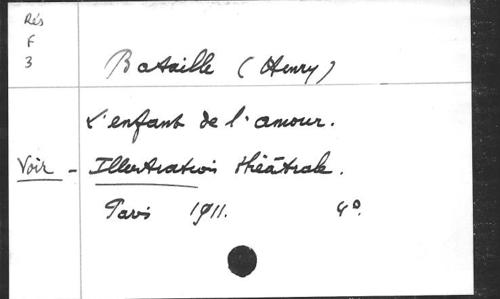 Rés
F
3
Bataille (Henry)
L'enfant de l'amour.
Voir - Illustration théâtrale.
Paris 1911. 4°.